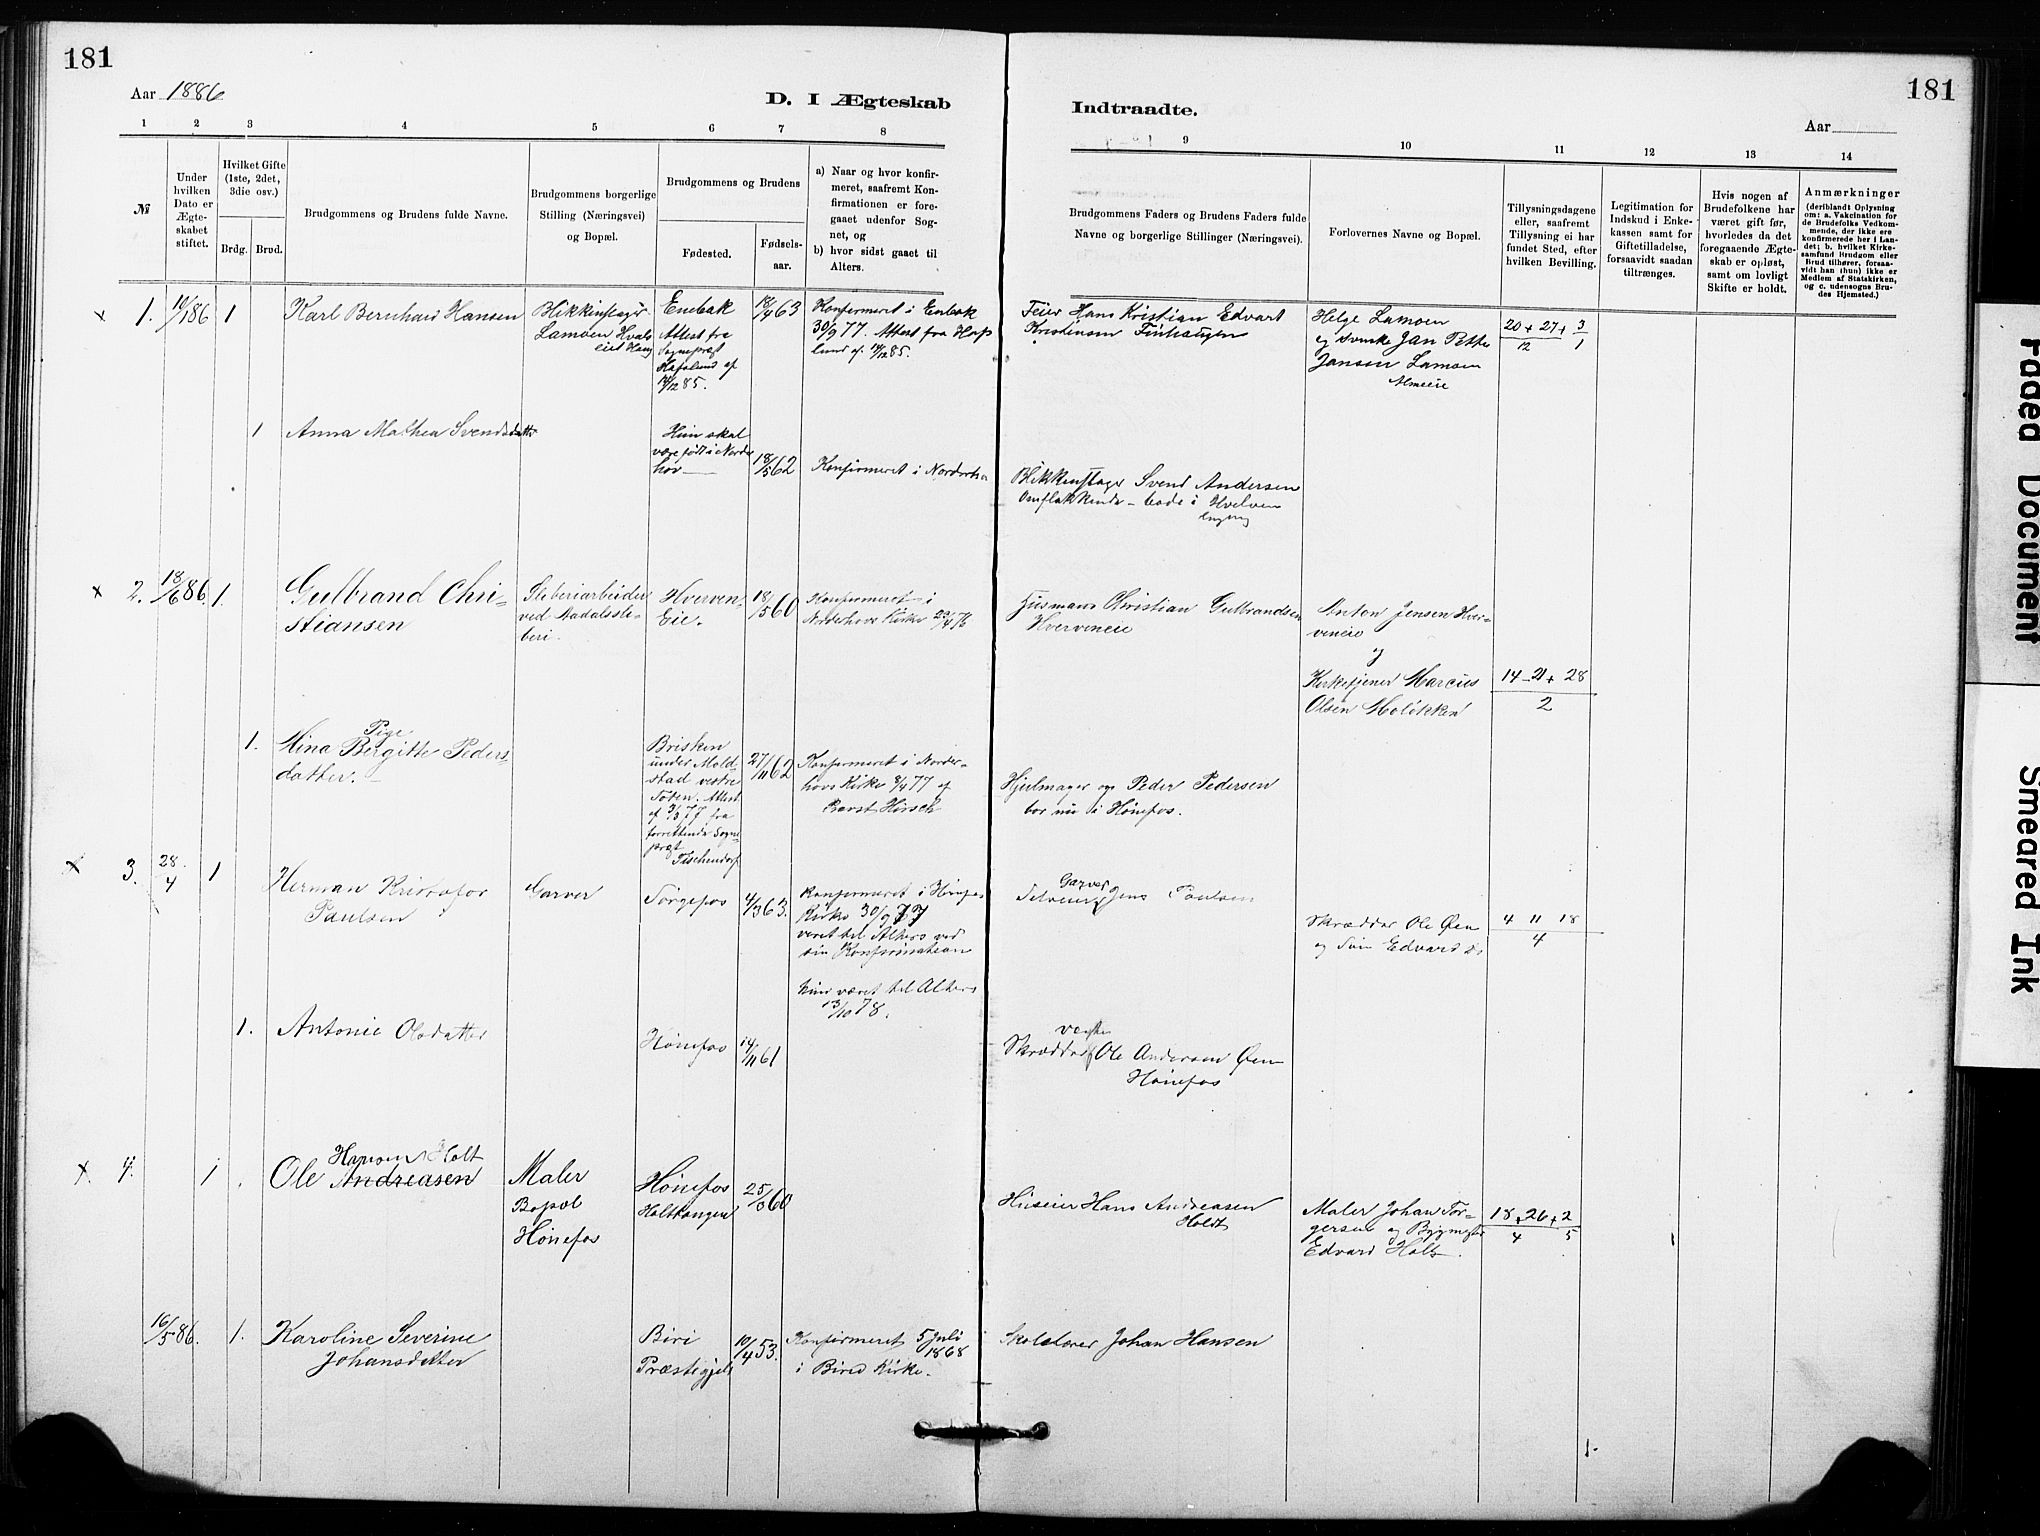 181
181
Aar 1886
D. I Ægteskab
Indtraadte.
Aar
1 2 3 4 5 6 7 8
9 10 11 12 13 14
№
Under hvilken Dato er Ægteskabet stiftet.
Hvilket Gifte (1ste, 2det, 3die osv.)
Brdg. Brud.
Brudgommens og Brudens fulde Navne.
Brudgommens borgerlige Stilling (Næringsvei) og Bopæl.
Brudgommens og Brudens
Fødested.
Fødsels-aar.
a) Naar og hvor konfirmeret, saafremt Konfirmationen er foregaaet udenfor Sognet, og
b) hvor sidst gaaet til Alters.
Brudgommens Faders og Brudens Faders fulde Navne og borgerlige Stillinger (Næringsvei).
Forlovernes Navne og Bopæl.
Tillysningsdagene eller, saafremt Tillysning ei har fundet Sted, efter hvilken Bevilling.
Legitimation for Indskud i Enkekassen samt for Giftetilladelse, forsaavidt saadan tiltrænges.
Hvis nogen af Brudefolkene har været gift før, hvorledes da det foregaaende Ægteskab er opløst, samt om lovligt Skifte er holdt.
Anmærkninger
(deriblandt Oplysning om: a. Vakcination for de Brudefolks Vedkommende, der ikke ere konfirmerede her i Landet; b. hvilket Kirkesamfund Brudgom eller Brud tilhører, forsaavidt han (hun) ikke er Medlem af Statskirken, og c. udensogns Brudes Hjemsted.)
x 1. 10/1 86 1
Karl Bernhard Hansen
Blikkenslager
Lamoen Hvals
Enebak
Attest fra
Sognepræst
Hafslund af
14/12 85.
18/4 63
Konfirmeret i Enebak
30/9 77. Attest fra Haf
lund af 14/12 85.
Feier Hans Kristian Edvart
Kristensen Finhaugen
Helge Lamoen
og Svenke Jan Petter
Jansen Lamoen
Almeie
20 + 27 + 3
12 1
1 Anna Mathea Svendsdatter
Hun skal
være født i Norder
hov
18/5 62
Konfirmeret i Norderhov
Blikkenslager Svend Andersen
Omflakkende - bode i Hvelven
x 2. 18/6 86. 1.
Gulbrand Chri-
stiansen
Sliberiarbeider
ved Aadalssli-
beri.
Hverven
Eie.
18/5 60
Konfirmeret i
Norderhovs Kirke
Husmand Christian Gulbrandsen
Hverveneie
Anton Jensen Hver-
veneie
og
Kirketjener Marcus
Olsen Moløkken
14 - 21 + 28
2
1. Pige
Mina Bergitte Peders-
datter.
Brisken
under Mold-
stad vestre
Toten. Attest
af 77 fra
forrettende Sogne
præst
Tischendorf
27/11 62
Konfirmeret i Norder-
hovs Kirke 8/4 77 af
Provst Hirsch
Hjulmager og Peder Pedersen
bor nu i Hønefos.
x 3. 28/4 1
Herman Kristofor
Paulsen
Garver
Sørgefos
4/3 63.
Konfirmeret i Hønefos
Kirke 30/9 77
veret til Alters ved
sin Konfirmation
Garver
Jens Paulsen
Skrædder Ole Øen
og Søn Edvard do
4 11 18
4
hun været til Alters
13/10 78.
1. Antonie Olsdatter
Hønefos
14/11 61
Skrædder Ole Andersen Øen
Hønefos
x 4. 1
Hansen Holt
Ole Andreasen
Maler
Bopæl
Hønefos
Hønefos
Holthaugen
25/3 60
Huseier Hans Andreasen
Holdt
Maler Johan Tor-
gersen og Bygmester
Edvard Holt.
18 + 26 + 2
4 5
16/5 86. 1.
Karoline Severine
Johansdatter
Biri
Præstegjeld
19/4 53.
Konfirmeret 5 Juli
1868
i Bired Kirke.
Skolelærer Johan Hansen
Faded Document
Smeared Ink